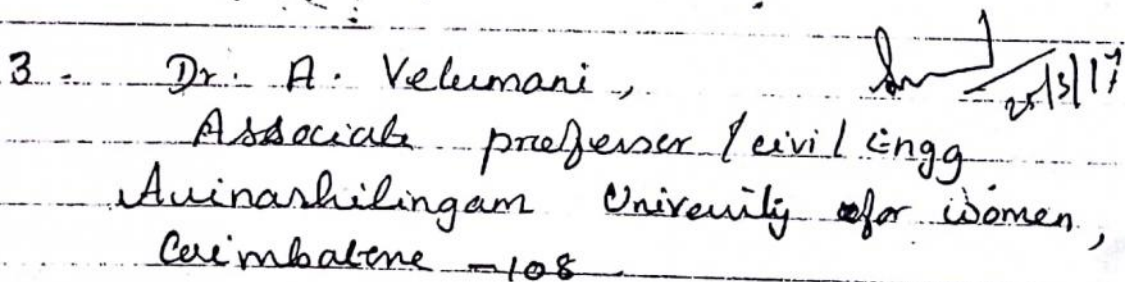 3. Dr. A. Velumani,
Associate professor / civil Engg
Avinashilingam University for women,
Coimbatore - 108
25/3/17